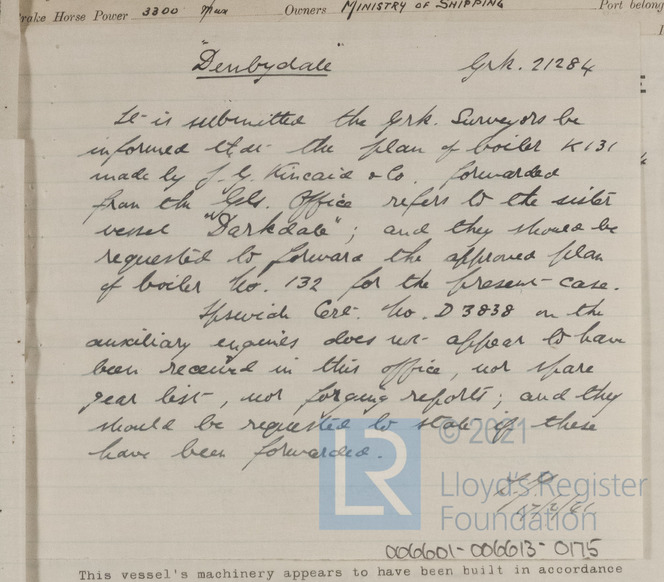 Brake Horse Power 3300 Max Owners MINISTRY OF SHIPPING Port belong
"Denbydale" Grk. 21284
It is submitted the Grk. Surveyors be
informed that the plan of boiler K131
made by J. G. Kincaid & Co. forwarded
from the Gls. Office refers to the sister
vessel "Darkdale"; and they should be
requested to forward the approved plan
of boiler No. 132 for the present case.
Ipswich Cert. No. D3838 on the
auxiliary engines does not appear to have
been received in this office, nor spare
gear list, nor forging reports; and they
should be requested to state if these
have been forwarded.
LR © 2021
Lloyd's Register
Foundation
006601-006613-0175
This vessel's machinery appears to have been built in accordance